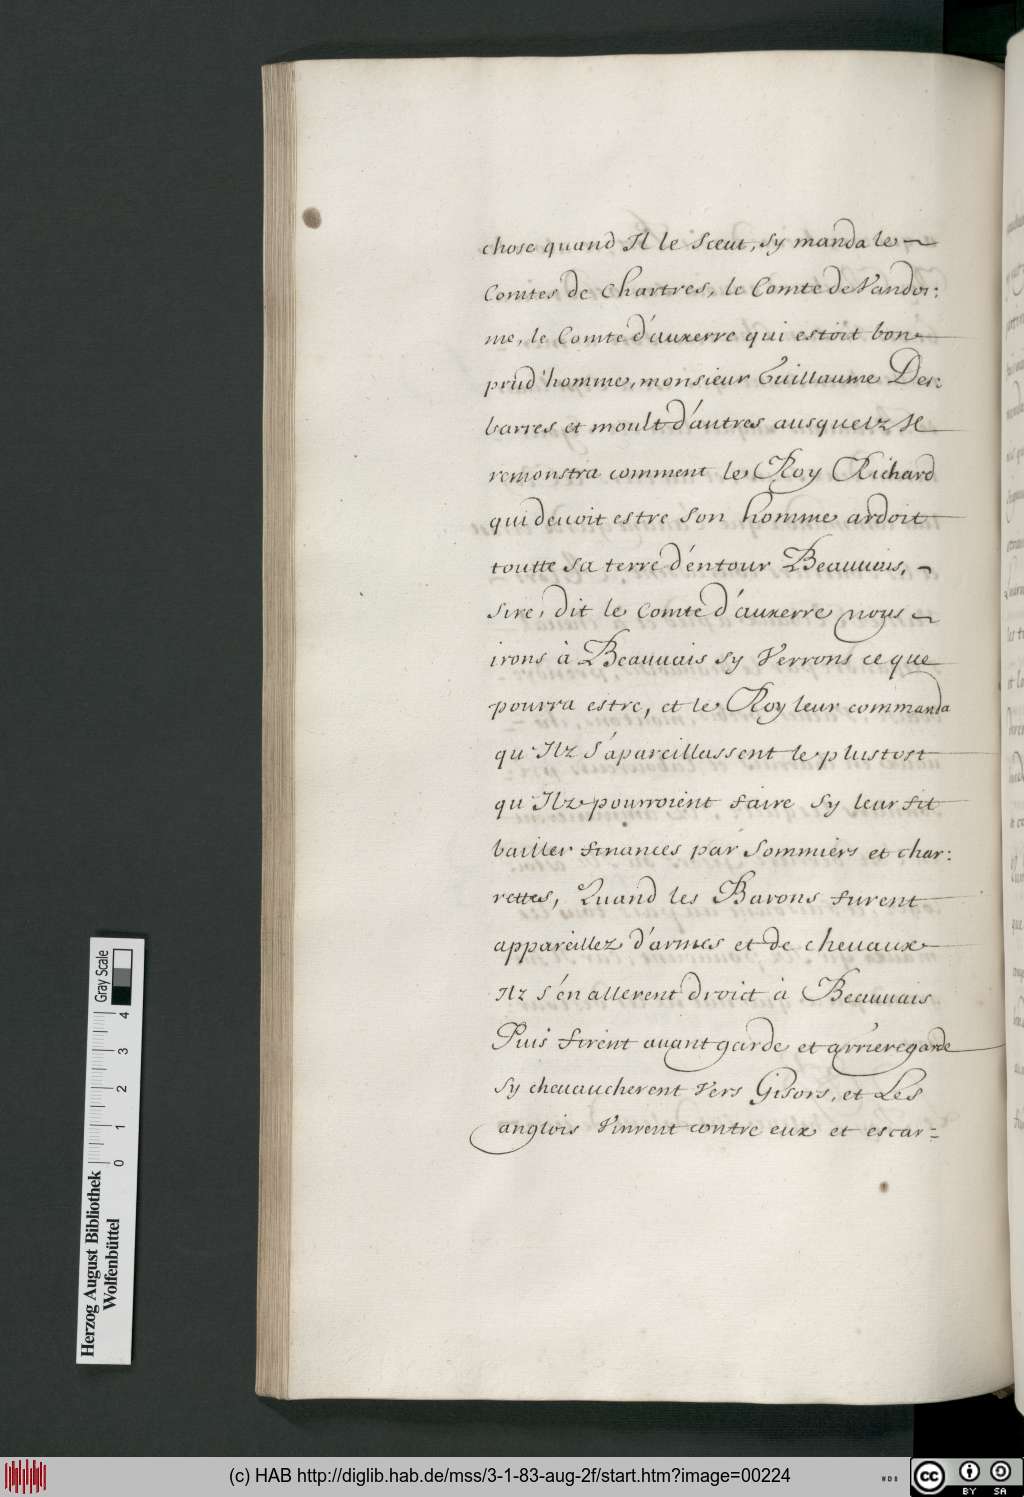 chose quand Il le Sceut, sy manda le
Comtes de Chartres, le Comte de Vandos:
me, le Comte d'auxerre qui estoit bon
prud'homme, monsieur Guillaume Des:
barres et moult d'autres ausquelz Il
remonstra comment le Roy Richard
qui devoit estre son homme ardoit
toutte sa terre d'entour Beauvais,
sire, dit le Comte d'auxerre nous
irons à Beauvais sy Verrons ce que
pourra estre, et le Roy leur commanda
qu'Ilz s'apareillassent le plustost
qu'Ilz pourroient faire sy leur fit
bailler finances par Sommiers et char:
rettes, Quand les Barons furent
appareillez d'armes et de chevaux
Ilz s'en allerent droict à Beauvais
Puis firent avantgarde et arrieregarde
sy chevaucherent Vers Gisors, et Les
anglois Vinrent contre eux et escar=
Herzog August Bibliothek
Wolfenbüttel
Gray Scale
0 1 2 3 4
(c) HAB http://diglib.hab.de/mss/3-1-83-aug-2f/start.htm?image=00224
WDB
cc BY SA